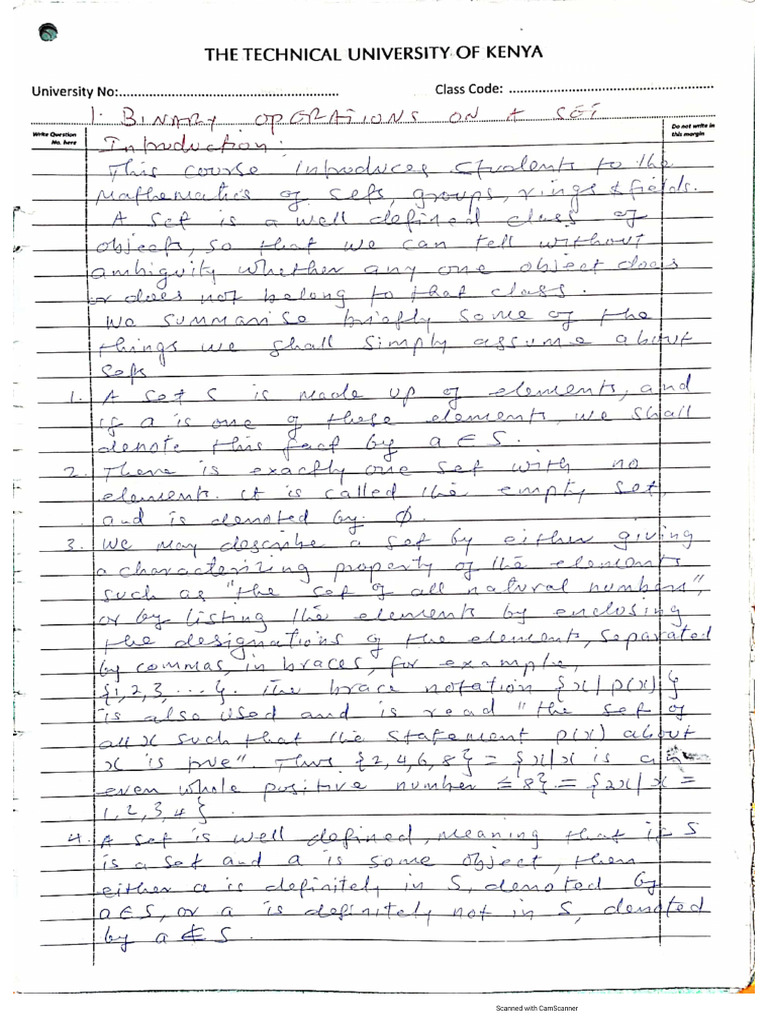 THE TECHNICAL UNIVERSITY OF KENYA
University No:.................................................. Class Code: ..................................................
1. BINARY OPERATIONS ON A SET
Write Question No. here
Do not write in this margin
Introduction:
This course introduces students to the
Mathematics of sets, groups, rings & fields.
A set is a well defined class of
objects, so that we can tell without
ambiguity whether any one object does
or does not belong to that class.
We summarise briefly some of the
things we shall simply assume about
sets
1. A set S is made up of elements, and
if a is one of these elements, we shall
denote this fact by a ∈ S.
2. There is exactly one set with no
elements. It is called the empty set,
and is denoted by ∅.
3. We may describe a set by either giving
a characterizing property of the elements
such as "the set of all natural numbers",
or by listing the elements by enclosing
the designations of the elements, separated
by commas, in braces, for example,
{1,2,3, ... }. The brace notation {x | p(x)}
is also used and is read "the set of
all x such that the statement p(x) about
x is true". Thus {2,4,6,8} = {x | x is an
even whole positive number ≤ 8} = {2x | x =
1, 2, 3, 4}.
4. A set is well defined, meaning that if S
is a set and a is some object, then
either a is definitely in S, denoted by
a ∈ S, or a is definitely not in S, denoted
by a ∉ S.
Scanned with CamScanner